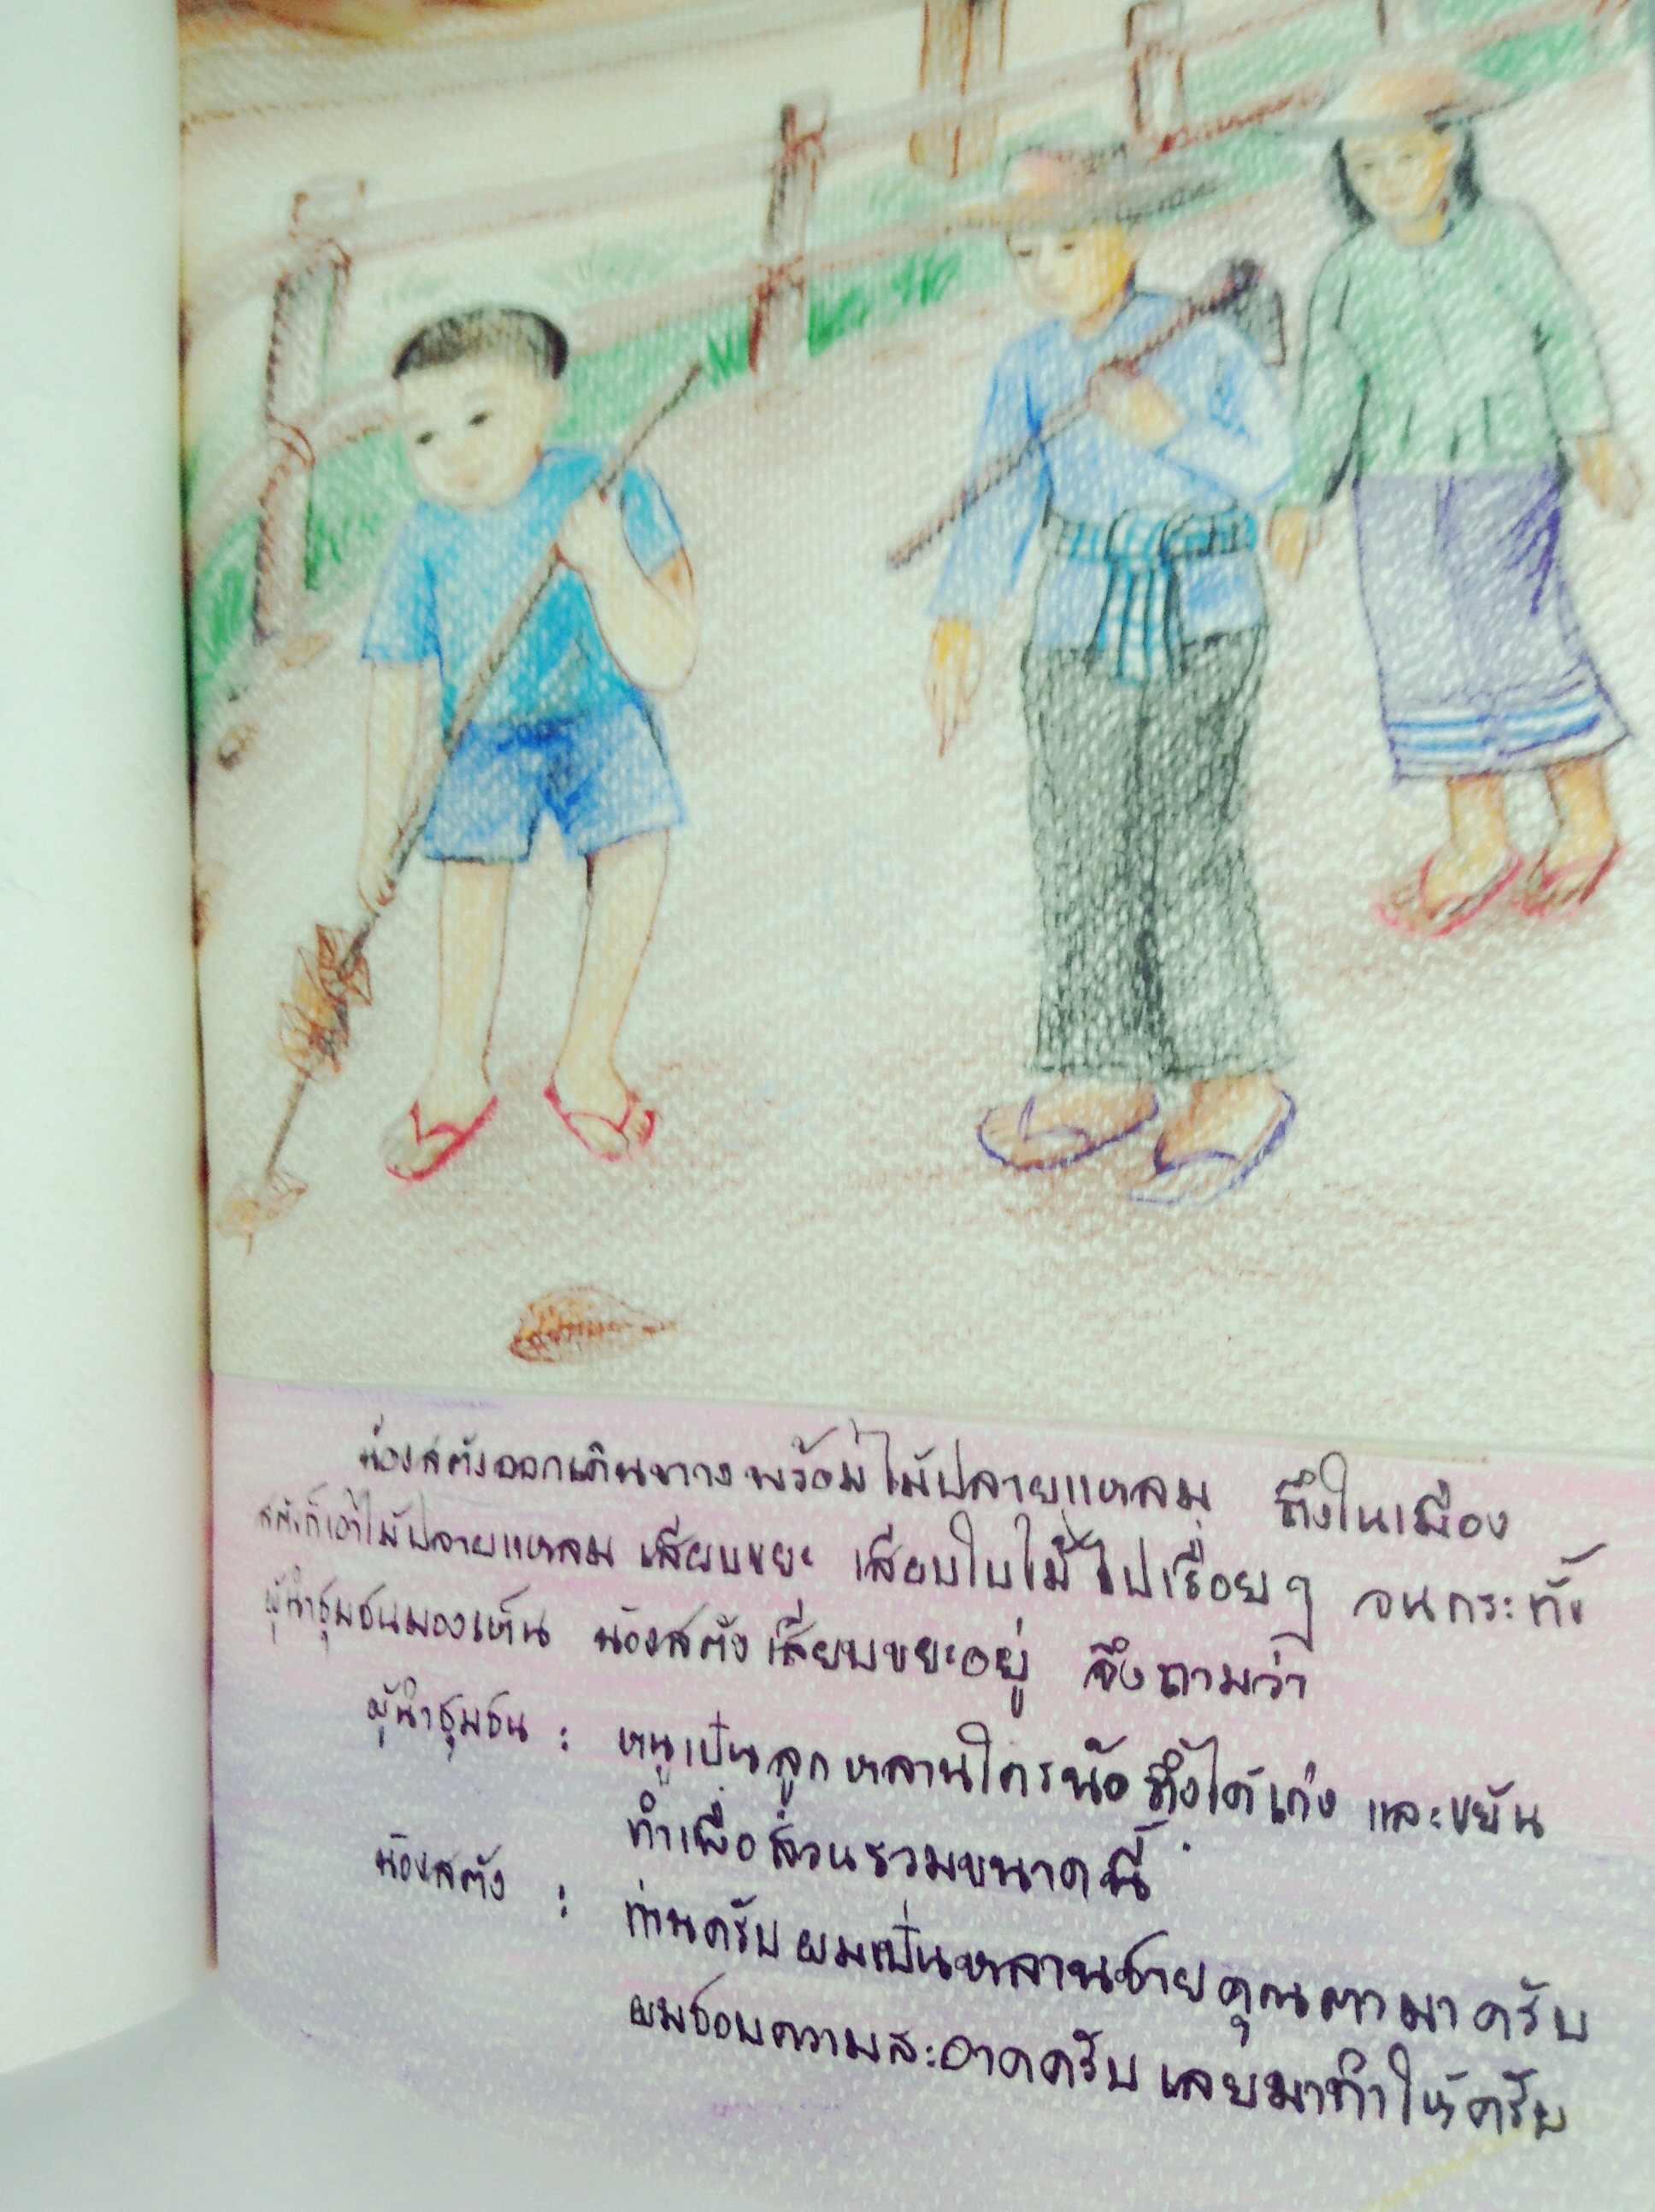 น้องสตังออกเดินทางพร้อมไม้ปลายแหลม ถึงในเมือง
สตังก็เอาไม้ปลายแหลม เสียบขยะ เสียบใบไม้ไปเรื่อยๆ จนกระทั้ง
ผู้นำชุมชนมองเห็น น้องสตังเสียบขยะอยู่ จึงถามว่า
ผู้นำชุมชน : หนูเป็นลูกหลานใครน้อ ถึงได้เก่ง และขยัน
ทำเพื่อส่วนรวมขนาดนี้
น้องสตัง : ท่านครับ ผมเป็นหลานชายคุณตามาครับ
ผมชอบความสะอาดครับ เลยมาทำให้ครับ